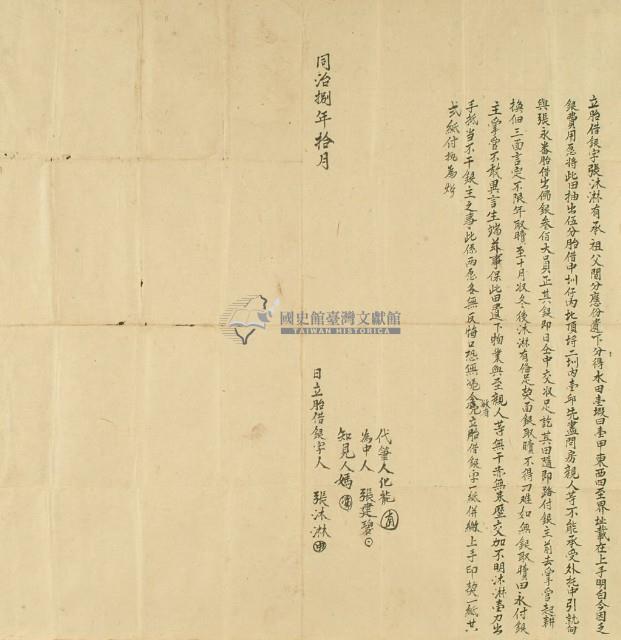 立胎借銀字張沐淋有承祖父鬮分應份遺下分得水田壹塅田壹甲東西四至界址載在上手明白今因乏
銀費用愿將此田抽出伍分胎借中圳仔內北頂埒二圳內壹坵先盡問房親人等不能承受外托中引就向
與張永番胎借出佛銀叁佰大員正其銀即日仝中交收足訖其田隨即踏付銀主前去掌管起耕
換佃三面言定不限年取贖至十月收冬後沐淋有俻足契面銀取贖不得刁難如無銀取贖田永付銀
主掌管不敢異言生端茲事保此田遺下物業與至親人等無干亦無來歷交加不明沐淋壹力出
手抵当不干銀主之事此係兩愿各無反悔口恐無憑今立胎借銀字一紙併繳上手印契一紙共
弍紙付執為炤
同治捌年拾月
日立胎借銀字人 張沐淋
知見人媽
為中人 張建碧
代筆人化龍
國史館臺灣文獻館
TAIWAN HISTORICA